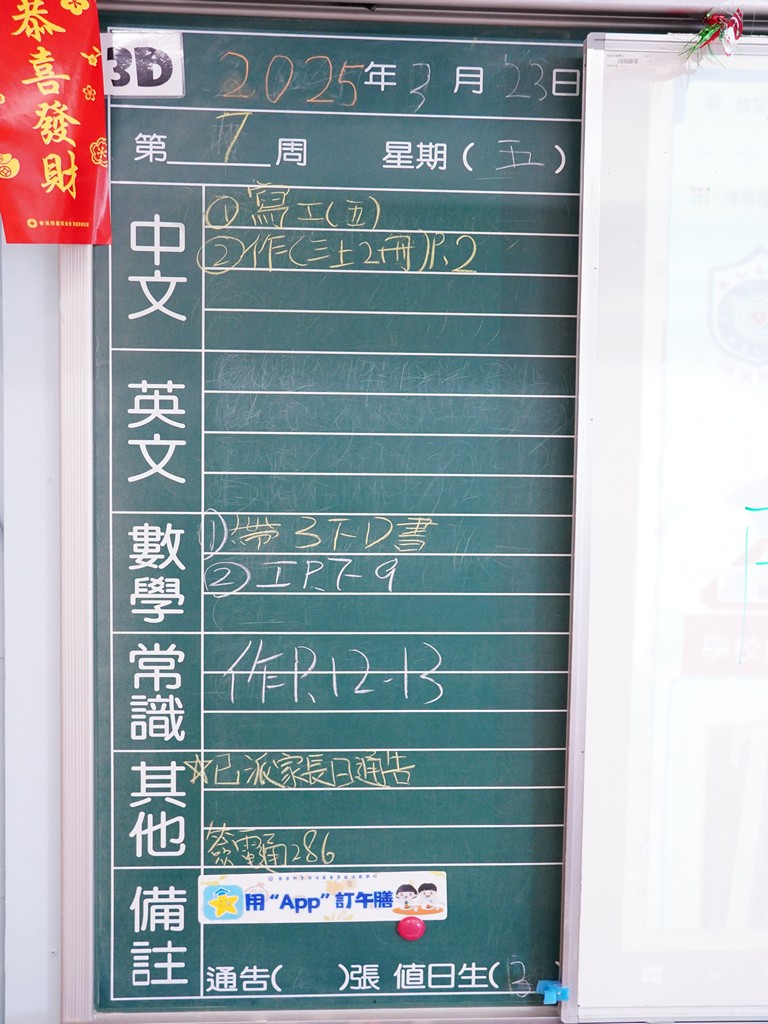 恭喜發財
3D
2025年3月23日
第7周 星期(五)
中文
①寫工(五)
②作(三上2冊)P.2
英文
數學
①帶3下D書
②工P.7-9
常識
作P.12-13
其他
☆已派家長日通告
簽電通286
備註
用“App”訂午膳
通告( )張 值日生( )